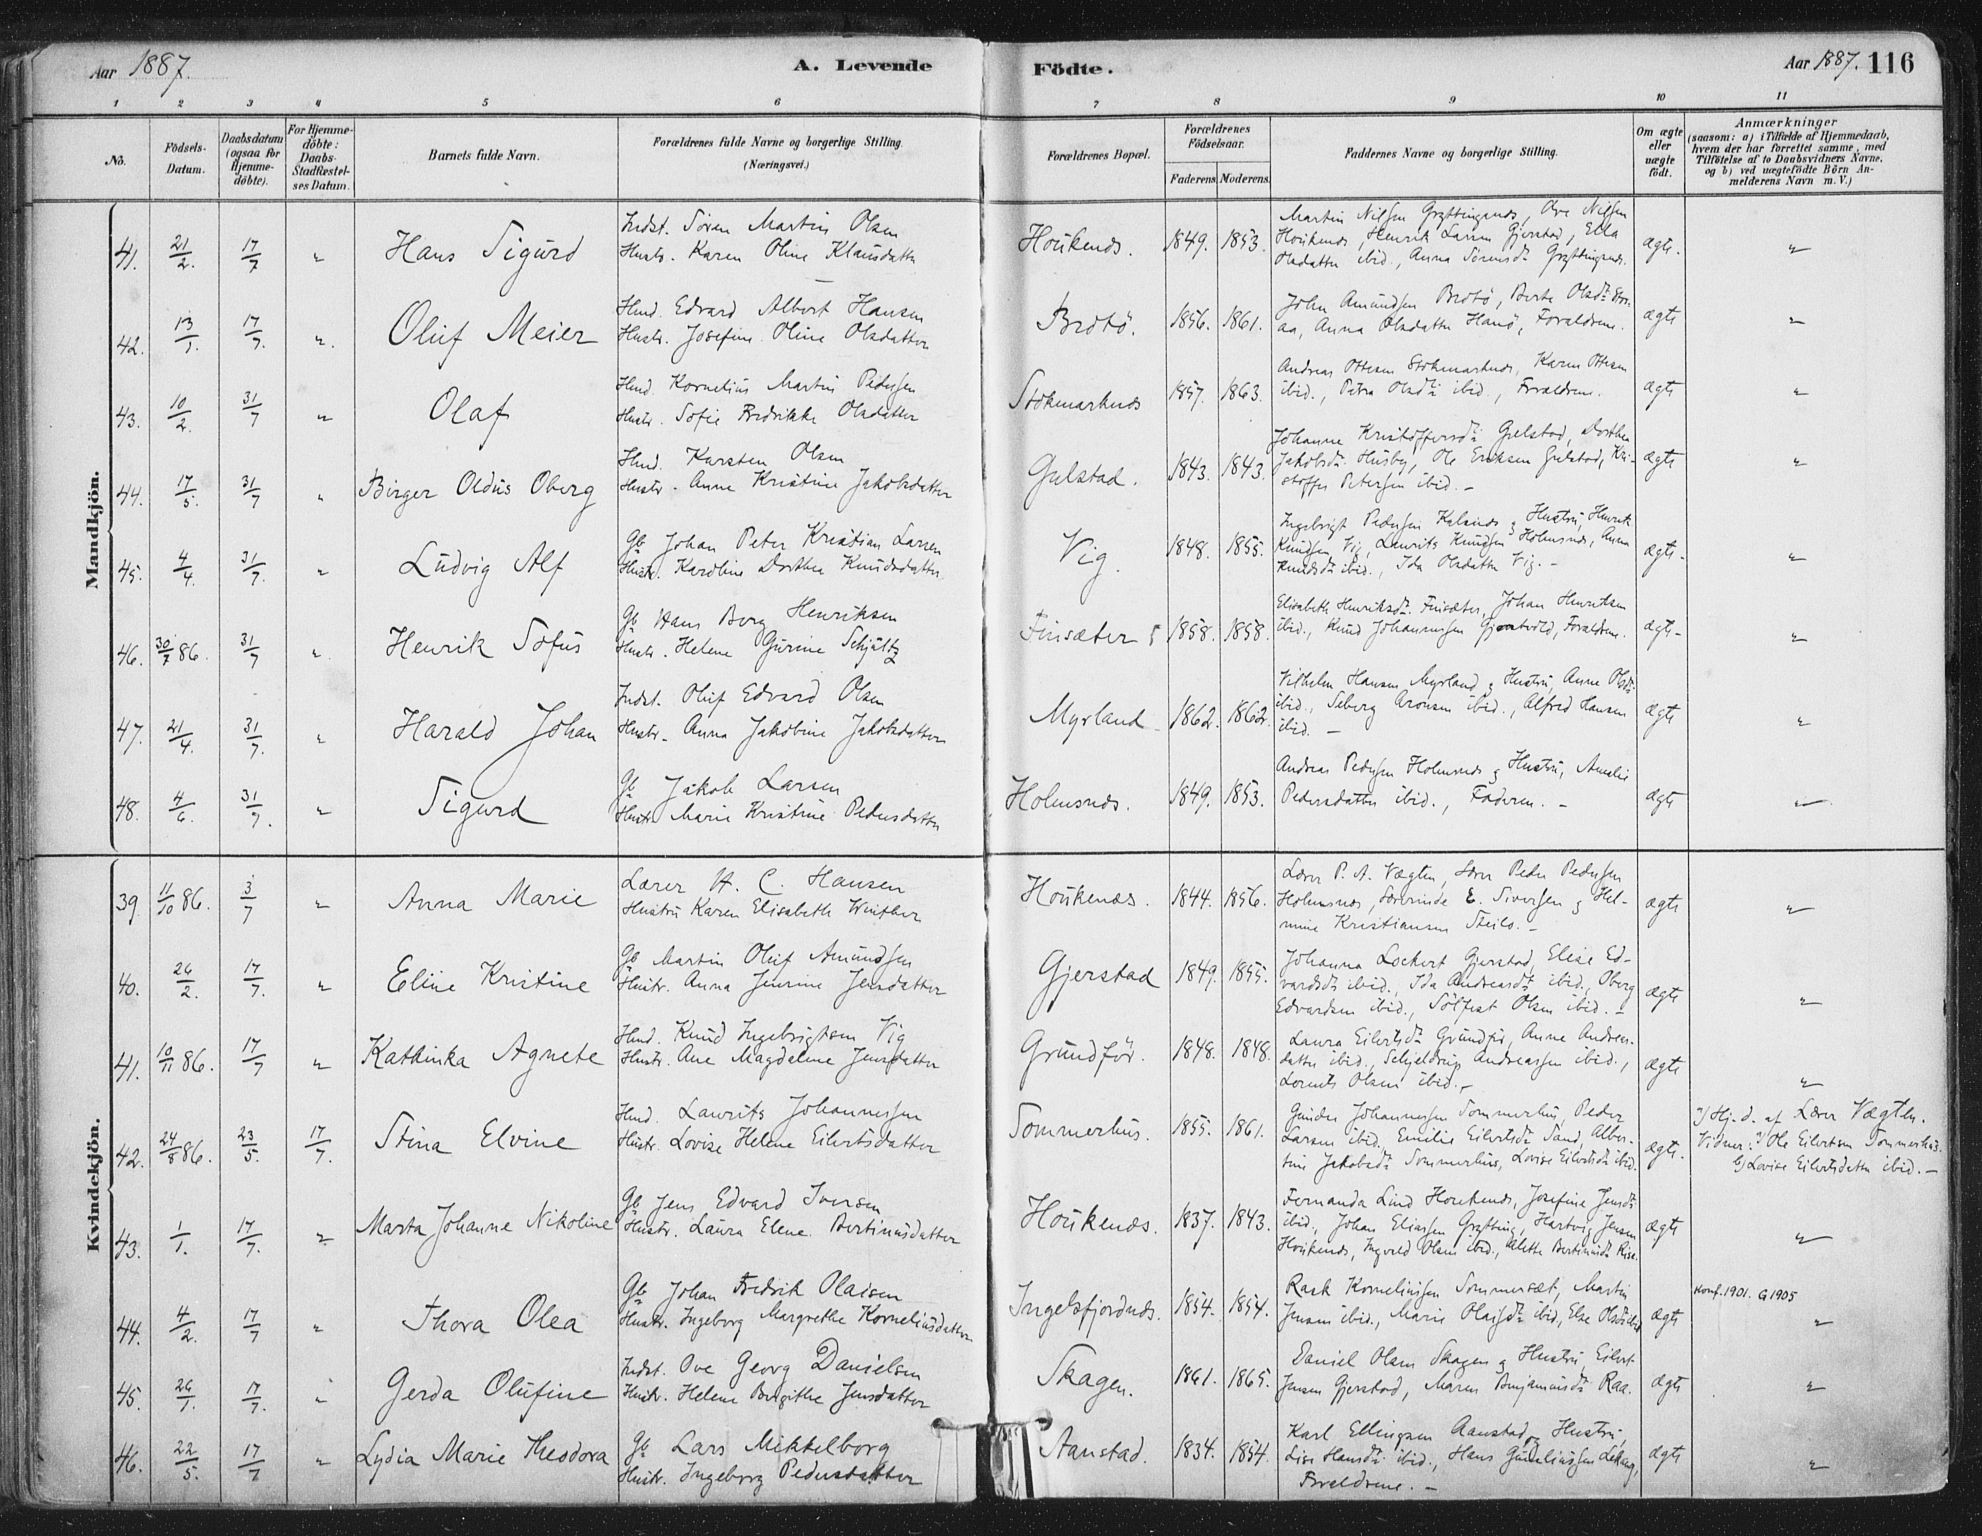 Aar 1887.
A. Levende Födte.
Aar 1887. 116
1 2 3 4 5 6 7 8 9 10 11
No.
Födsels-Datum.
Daabsdatum (ogsaa for Hjemme-döbte).
For Hjemme-döbte: Daabs-Stadfæstel-ses Datum.
Barnets fulde Navn.
Forældrenes fulde Navne og borgerlige Stilling (Næringsvei.)
Forældrenes Bopæl.
Forældrenes Födselsaar.
Faderens Moderens.
Faddernes Navne og borgerlige Stilling.
Om ægte eller uægte födt.
Anmærkninger
(saasom: a) i Tilfælde af Hjemmedaab,
hvem der har forrettet samme, med
Tilföielse af to Daabsvidners Navne,
og b) ved uægtefödte Börn An-
melderens Navn m. V.)
Mandkjön.
41. 21/2. 17/7 " Hans Sigurd
Indst. Sören Martin Olsen
Hustr. Karen Oline Klausdatter
Houkenæs. 1849. 1853.
Martin Nilsen Gryttingnæs, Ove Nilsen
Houkenæs, Henrik Larsen Gjerstad, Ella
Olsdatter ibid., Anna Sörensdtr Gryttingnæs.
ægte. "
42. 13/1. 17/7. " Oluf Meier
Hmd. Edvard Albert Hansen
Hustr. Josefine Oline Olsdatter
Brotö. 1856. 1861.
John Amundsen Brotö, Berte Olsdtr
Anna Olsdatter Hanö, Forældrene.
ægte "
43. 10/2. 31/7 " Olaf
Hmd. Kornelius Martin Pedersen
Hustr. Sofie Fredrikke Olsdatter
Stokmarknæs 1857. 1863.
Andreas Ottesen Stokmarknæs, Karen Ottesen
ibid., Petra Olsdtr ibid., Forældrene.
ægte "
44. 17/5. 31/7 " Birger Oldus Oberg
Hmd. Karsten Olsen
Hustr. Anne Kristine Jakobsdatter
Gulstad. 1843. 1843.
Johanne Kristoffersdtr Gulstad, Dorthea
Jakobsdtr Husby, Ole Eriksen Gulstad, Kri-
stoffer Petersen ibid. -
ægte "
45. 4/4. 31/7. " Ludvig Alf
Gb. Johan Peter Kristian Larsen
Hustr. Karoline Dorthea Knudsdatter
Vig. 1848. 1855.
Ingebrigt Pedersen Kalsnæs & Hustru, Henrik
Knudsen Vig, Laurits Knudsen Holmsnæs, Anna
Knudsdtr ibid., Ida Olsdatter Vig. -
ægte- "
46. 30/7 86. 31/7 " Henrik Sofus
Gb. Hans Berg Henriksen
Hustr. Helene Gurine Schjültz
Finsæter 1858. 1858.
Elisabeth Henriksdtr. Finsæter, Johan Henriksen
ibid., Knud Johannessen Gjerstvold, Forældrene.
ægte- "
47. 21/4. 31/7. " Harald Johan
Indst. Oluf Edvard Olsen
Hustr. Anna Jakobine Jakobsdatter
Myrland 1862. 1862.
Vilhelm Hansen Myrland & Hustru, Anne Olsdtr
ibid., Seberg Aronsen ibid., Alfred Hansen
ibid. -
ægte "
48. 4/6. 31/7. " Sigurd
Gb. Jakob Larsen
Hustr. Marie Kristine Pedersdatter
Holmsnæs. 1849. 1853.
Andreas Pedersen Holmsnæs & Hustru, Amalie
Pedersdatter ibid., Faderen. -
ægte "
Kvindekjön.
39. 11/10 86. 3/7 " Anna Marie
Lærer H. C. Hansen
Hustru Karen Elisabeth Winther
Houkenæs. 1844. 1856.
Lærer P. A. Vægten, Lærer Peder Pedersen
Holmsnæs, Lærerinde E. Sivertsen & Hel-
mine Kristiansen Steilo. -
ægte "
40. 26/2. 17/7. " Eline Kristine
Gb. Martin Oluf Amundsen
Hustr. Anna Jensine Jensdatter
Gjerstad 1849. 1855.
Johanna Lockert Gjerstad, Elise Ed-
vardsdtr ibid., Ida Andreasdtr ibid., Oberg
Edvardsen ibid., Sölfest Olsen ibid. -
ægte "
41. 10/11 86. 17/7 " Kathinka Agnete
Hmd. Knud Ingebrigtsen Vig
Hustr. Ane Magdalene Jensdatter
Grundför. 1848. 1848.
Laura Eilertsdtr Grundför, Anne Andreas-
datter ibid., Schjeldrup Andreassen ibid.,
Lorents Olsen ibid. -
ægte "
42. 24/8 86. 23/5. 17/7. Stina Elvine
Hmd. Laurits Johannessen
Hustr. Lovise Helene Eilertsdatter
Sommerhus. 1855. 1861.
Gunder Johannessen Sommerhus, Peder
Larsen ibid. Emilie Eilertsdtr Sand, Alber-
tine Jakobsdtr Sommerhus, Lovise Eilertsdtr ibid.
ægte.
Hj. d. af Lærer Vægten.
Vidner: a) Ole Eilertsen Sommerhus.
b) Lovise Eilertsdatter ibid. -
43. 1/1. 17/7. " Marta Johanne Nikoline
Gb. Jens Edvard Iversen
Hustr. Laura Elene Bertinusdatter
Houkenæs. 1837. 1843.
Fernanda Lind Houkenæs, Josefine Jensdtr
ibid., Johan Eliassen Grytting, Hartvig Jensen
Houkenæs, Ingvold Olsen ibid., Alette Bertinusdtr Rise.
ægte "
44. 4/2. 17/7 " Thora Olea
Gb. Johan Fredrik Olaisen
Hustr. Ingeborg Margrethe Korneliusdatter
Ingelsfjordnæs. 1854. 1854.
Rask Korneliussen Sommersæt, Martin
Jensen ibid., Marie Olaisdtr ibid, Else Olsdtr ibid
ægte
Konf. 1901. G 1905
"
45. 26/1. 17/7. " Gerda Olufine
Indst. Ove Georg Danielsen
Hustr. Helene Birgithe Jensdatter
Skagen. 1861. 1865.
Daniel Olsen Skagen & Hustru, Eilert
Jensen Gjerstad, Maren Benjaminsdtr Raa.
ægte "
46. 22/5. 17/7 " Lydia Marie Theodora
Gb. Lars Mikkelborg
Hustr. Ingeborg Pedersdatter
Aanstad. 1834. 1854.
Karl Ellingsen Aanstad & Hustru,
Lise Hansdtr ibid., Hans Gundeliussen Lekang,
Forældrene. -
ægte "